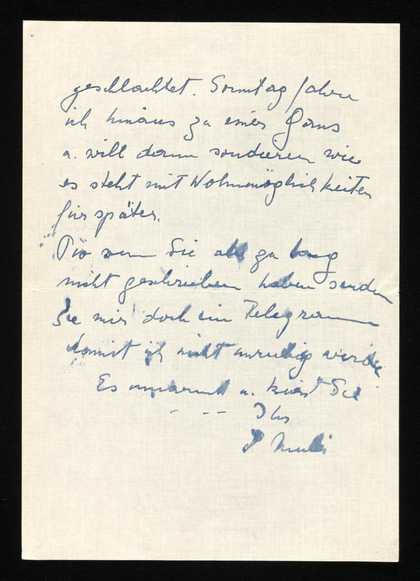 geschlachtet. Sonntag fahre
ich hinaus zu einer Gans
u. will dann sondieren wie
es steht mit Wohnmöglichkeiten
für später.
wenn Sie all zu lang
nicht geschrieben haben senden
Sie mir doch ein Telegramm
damit ich nicht unruhig werde
Es umarmt u. küsst Sie
- - - Ihr